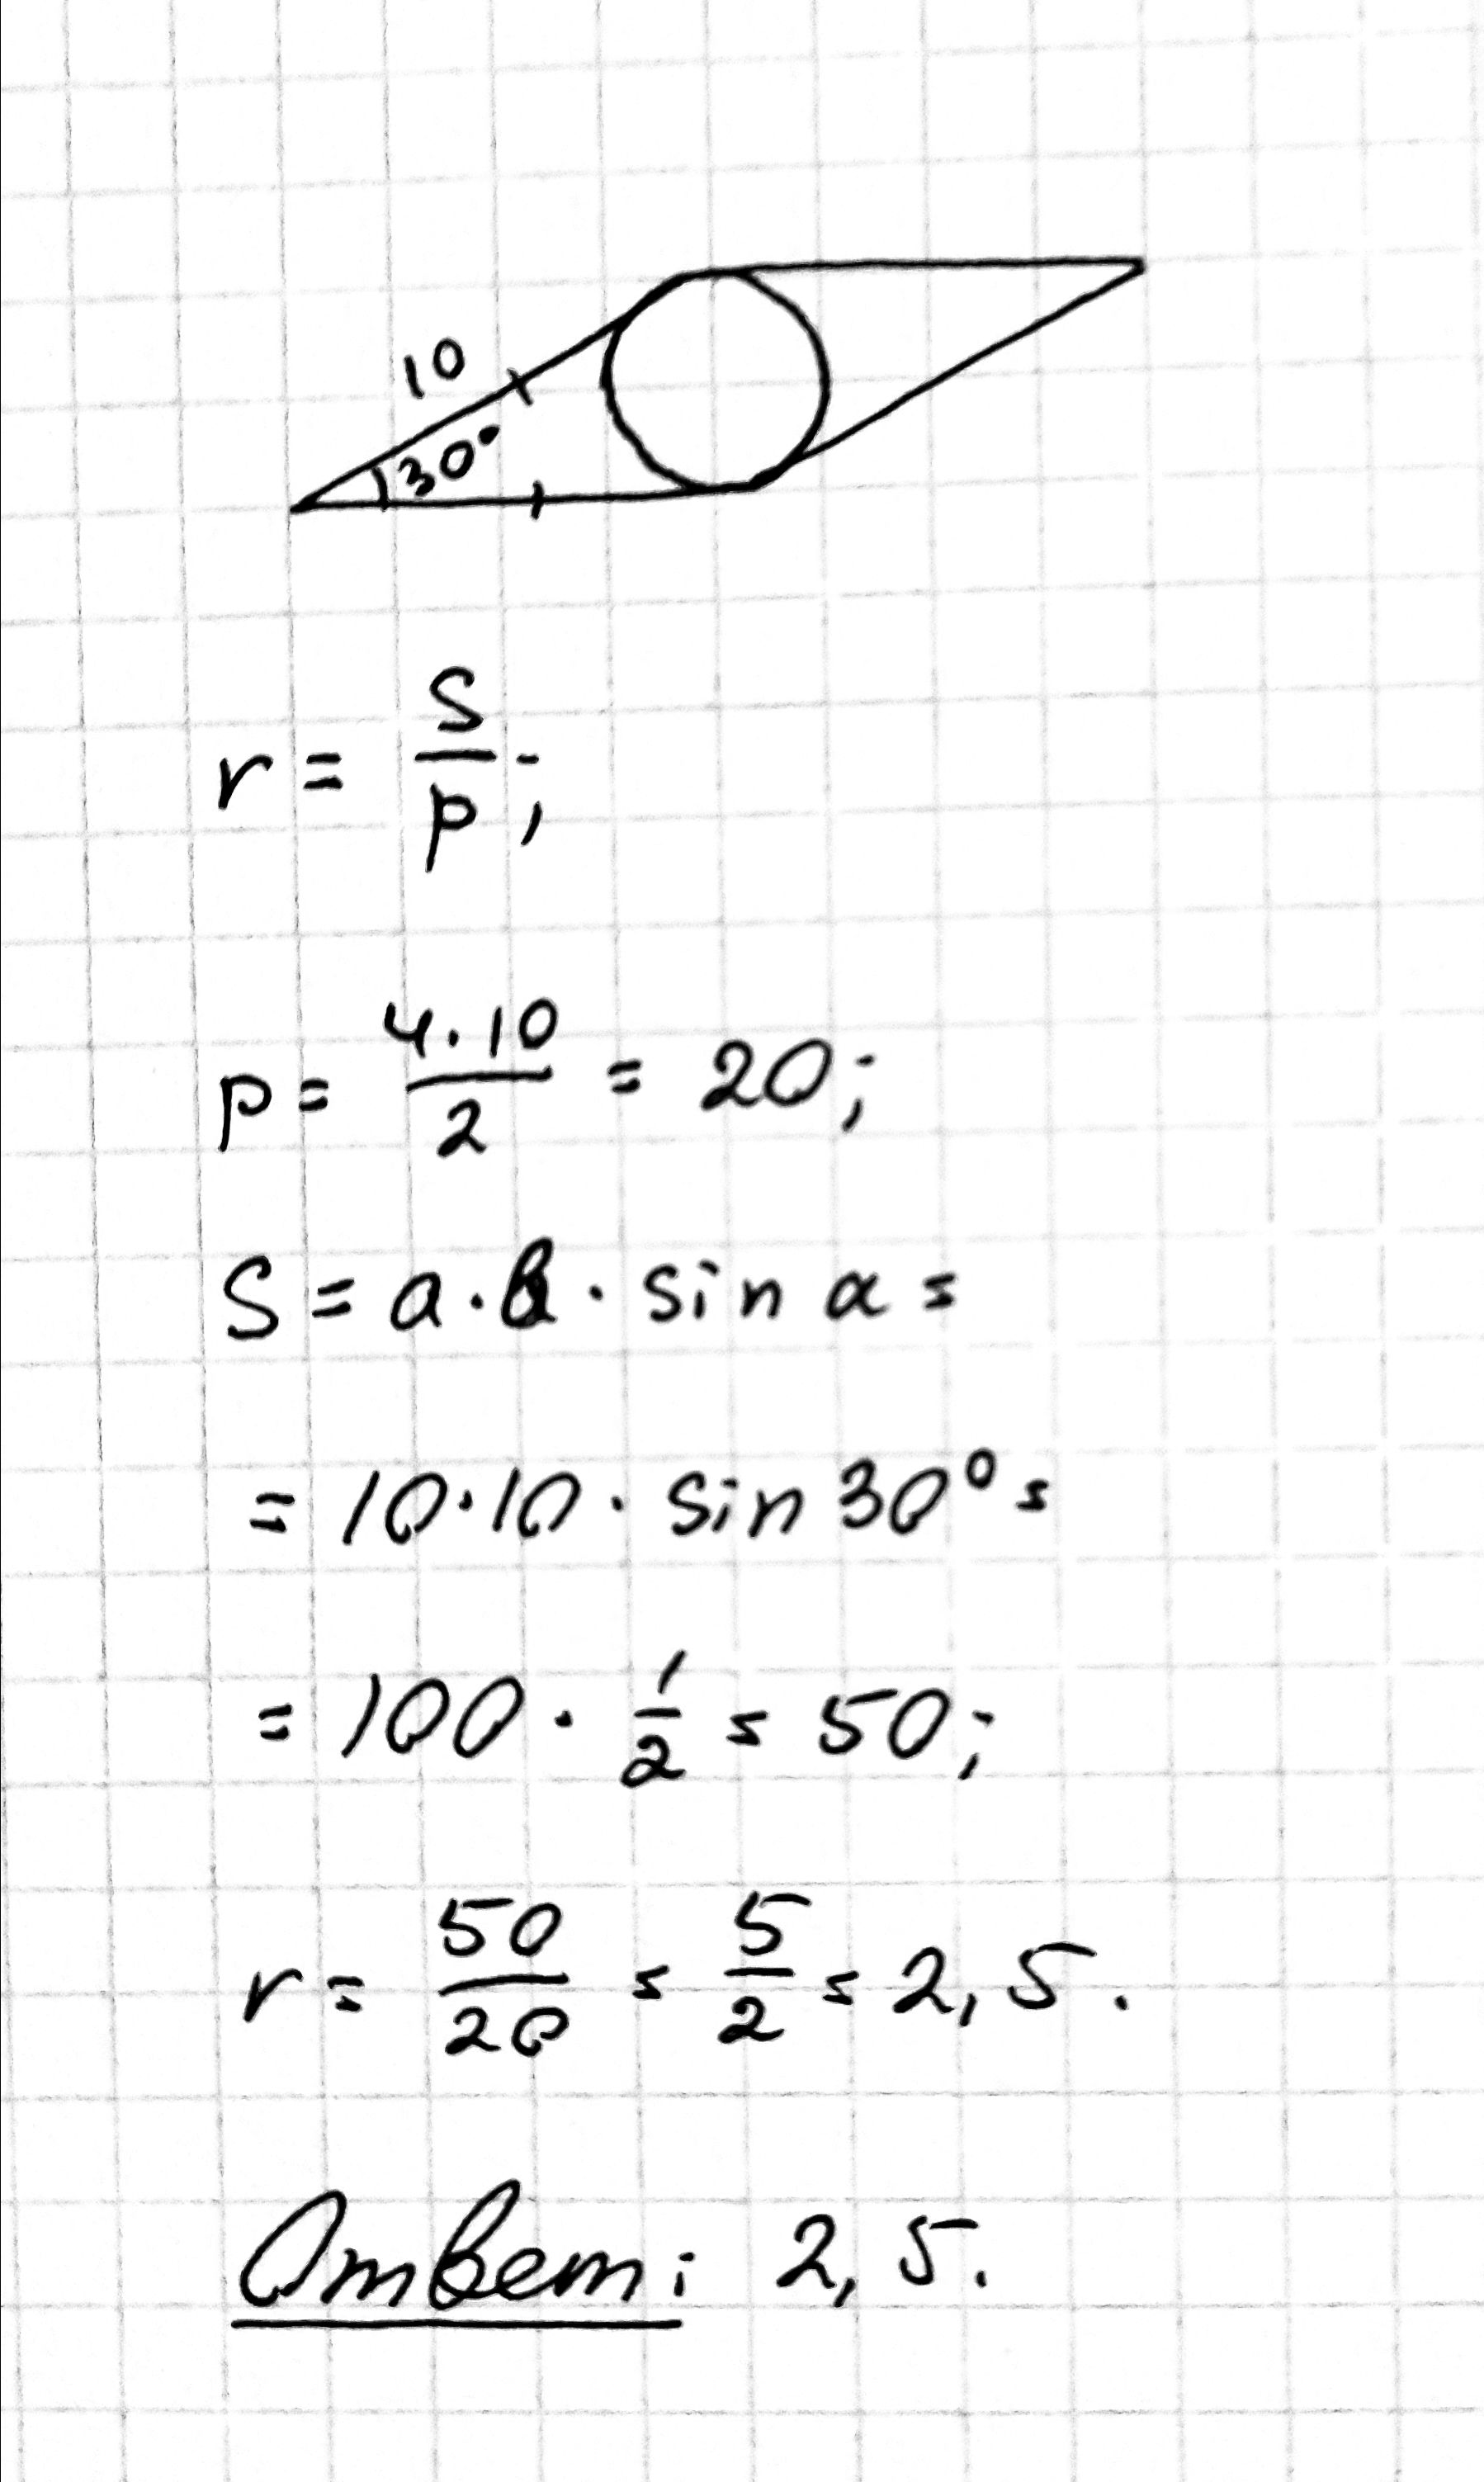 10
30°
r = S/p;
p = 4·10/2 = 20;
S = a·a · sin α =
= 10·10 · sin 30° =
= 100 · 1/2 = 50;
r = 50/20 = 5/2 = 2,5.
Ответ: 2,5.